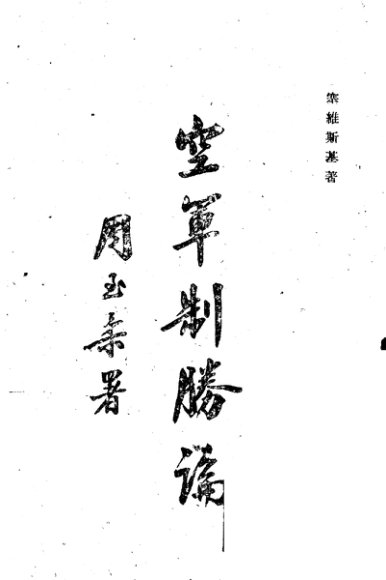 塞維斯基著
空軍制勝論
周至柔署